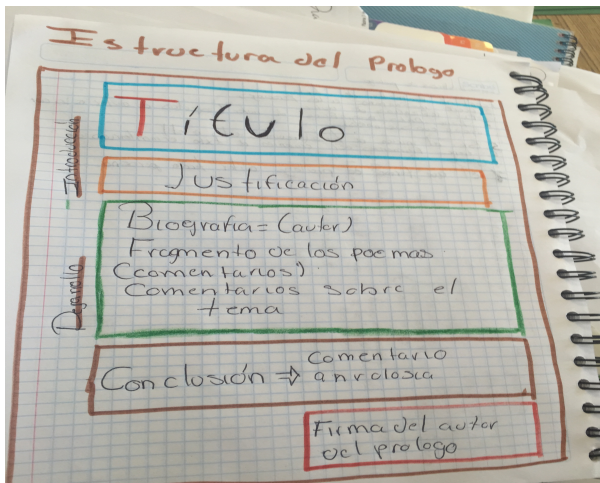 Estructura del Prologo
Introducción
Título
Justificación
Desarrollo
Biografia = (autor)
Fragmento de los poemas
(comentarios)
Comentarios sobre el
tema
Conclosión ⇒ Comentario
Firma del autor
del prologo